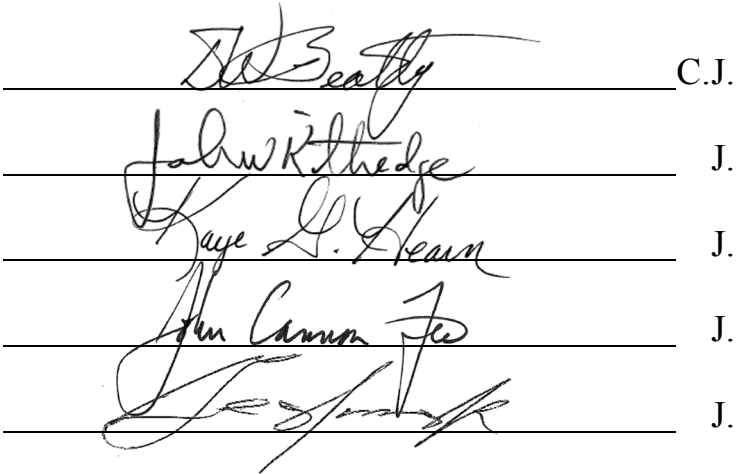 DW Beatty C.J.
John W Kittredge J.
Kaye G. Hearn J.
John Cannon Few J.
J.